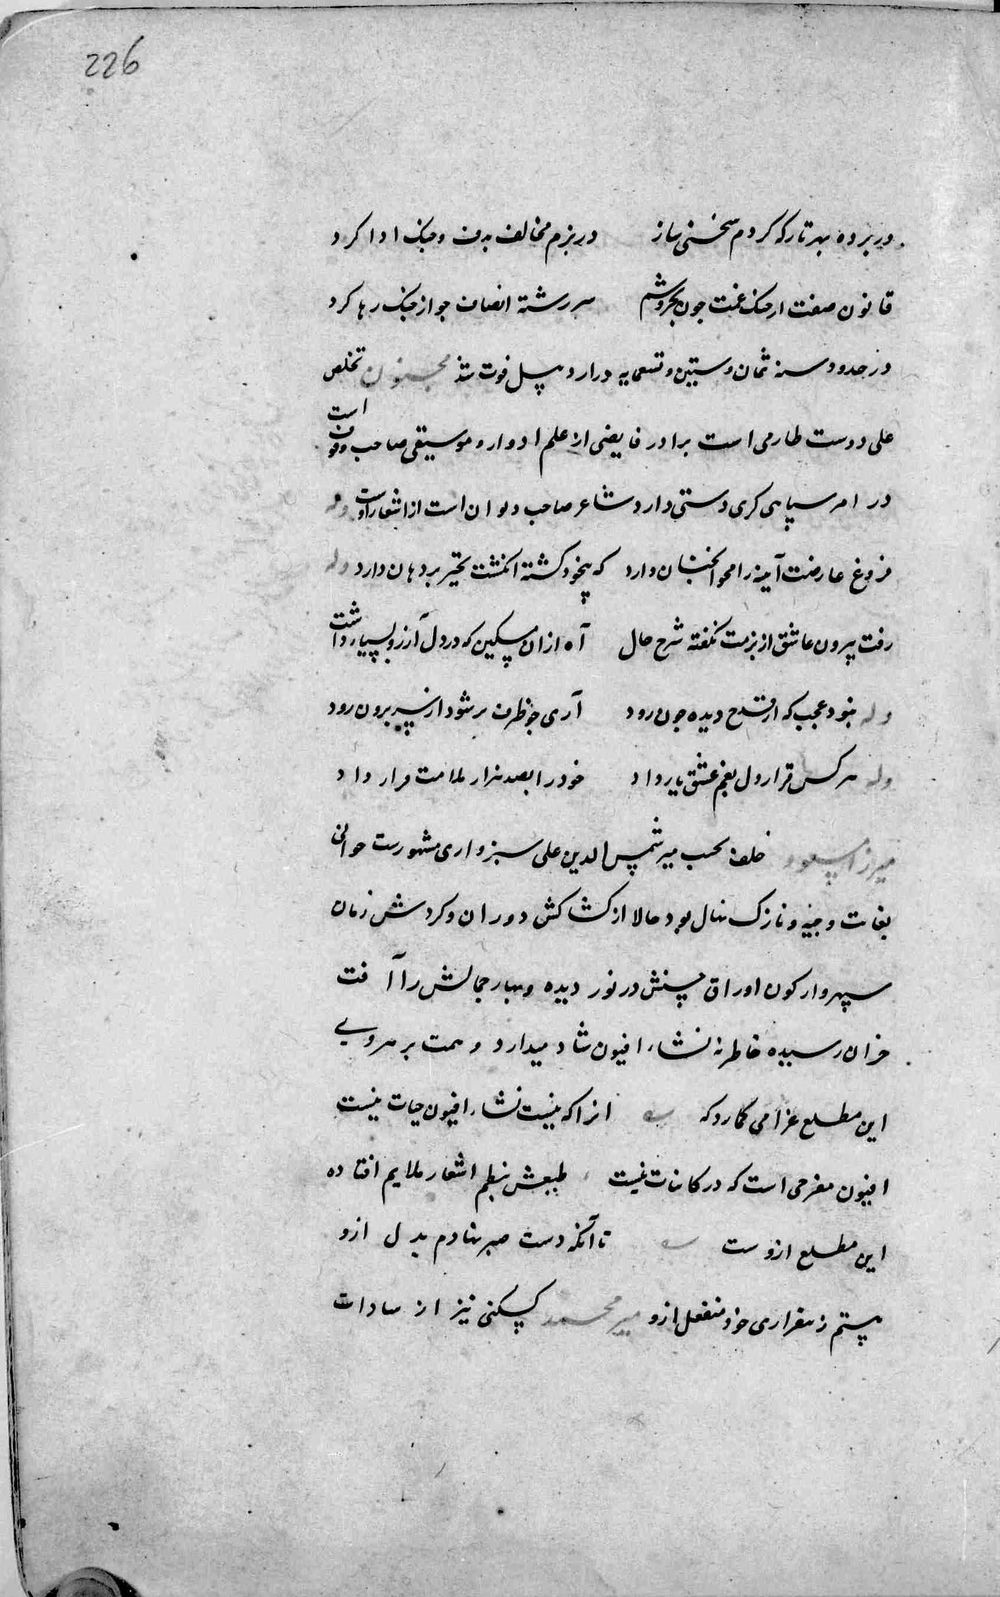 226
در پرده بهر تار که کردم سخنی ساز در بزم مخالف بدف و چنک ادا کرد
قانون صفت از چنک غمت چون بخروشم سر رشته انصاف چو از چنک رها کرد
در حدود سنه ثمان و ستین و تسعمایه در اردبیل فوت شد مجنون تخلص
علی دوست طارمی است برادر فایضی از علم ادوار و موسیقی صاحب وقوف است
در امر سپاهی کری دستی دارد شاعر صاحب دیوان است از اشعار اوست وله
فروغ عارضت آیینه را محو آنچنان دارد که بیخود کشته انکشت تحیر بر دهان دارد وله
رفت بیرون عاشق از بزمت نکفته شرح حال آه ازان مسکین که در دل آرزو بسیار داشت
وله نبود عجب که از قدح دیده خون رود آری چو ظرف پر شود از سر برون رود
وله هر کس قرار دل بغم عشق یار داد خود را بصد هزار ملامت قرار داد
میرزا مسعود خلف نجیب میر شمس الدین علی سبزواری مشهورست جوانی
بغایت وجیه و نازک نهال بود حالا از کشاکش دوران و کردش زمان
سپهر وارکون اوراق حسنش در نور دیده و بهار جمالش را آفت
خزان رسیده خاطر به نشاء افیون شاد میدارد و همت بر مرویی
این مطلع غزا می کمارد که انرا که نیست نشاء افیون حیات نیست
افیون مفرحی است که در کاینات نیست طبعش بنظم اشعار ملایم افتاده
این مطلع ازوست تا آنکه دست صبر نهادم بدل ازو
هستم ز بیقراری خود منفعل ازو میر محمد کسکنی نیز از سادات